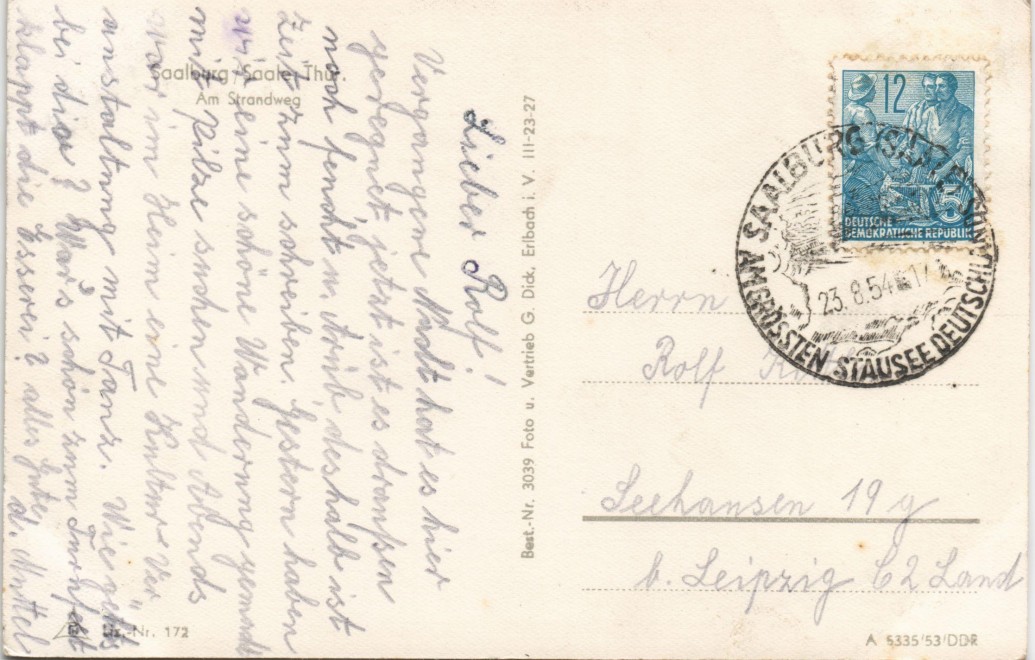 Saalburg/Saale, Thür.
Am Strandweg
Lieber Rolf!
Vergangene Nacht hat es hier
geregnet jetzt ist es draußen
noch feucht u. trüb deshalb ist
Zeit zum schreiben. Gestern haben
wir eine schöne Wanderung gemacht
mit Pilze suchen und Abends
war im Heim eine Kultur Ver
anstaltung mit Tanz. Wie gehts
bei dir? War's schön zum Turnfest
klappt die Esserei? alles Gute
d. Muttel
Best.-Nr. 3039 Foto u. Vertrieb G. Dick, Erlbach i. V. III-23-27
12
DEUTSCHE
DEMOKRATISCHE REPUBLIK
5
SAALBURG (SAALE)
23.8.54-17
AM GRÖSSTEN STAUSEE DEUTSCHLANDS
Herrn
Rolf
Seehausen 19g
b. Leipzig C2 Land
Liz.-Nr. 172
A 5335/53/DDR